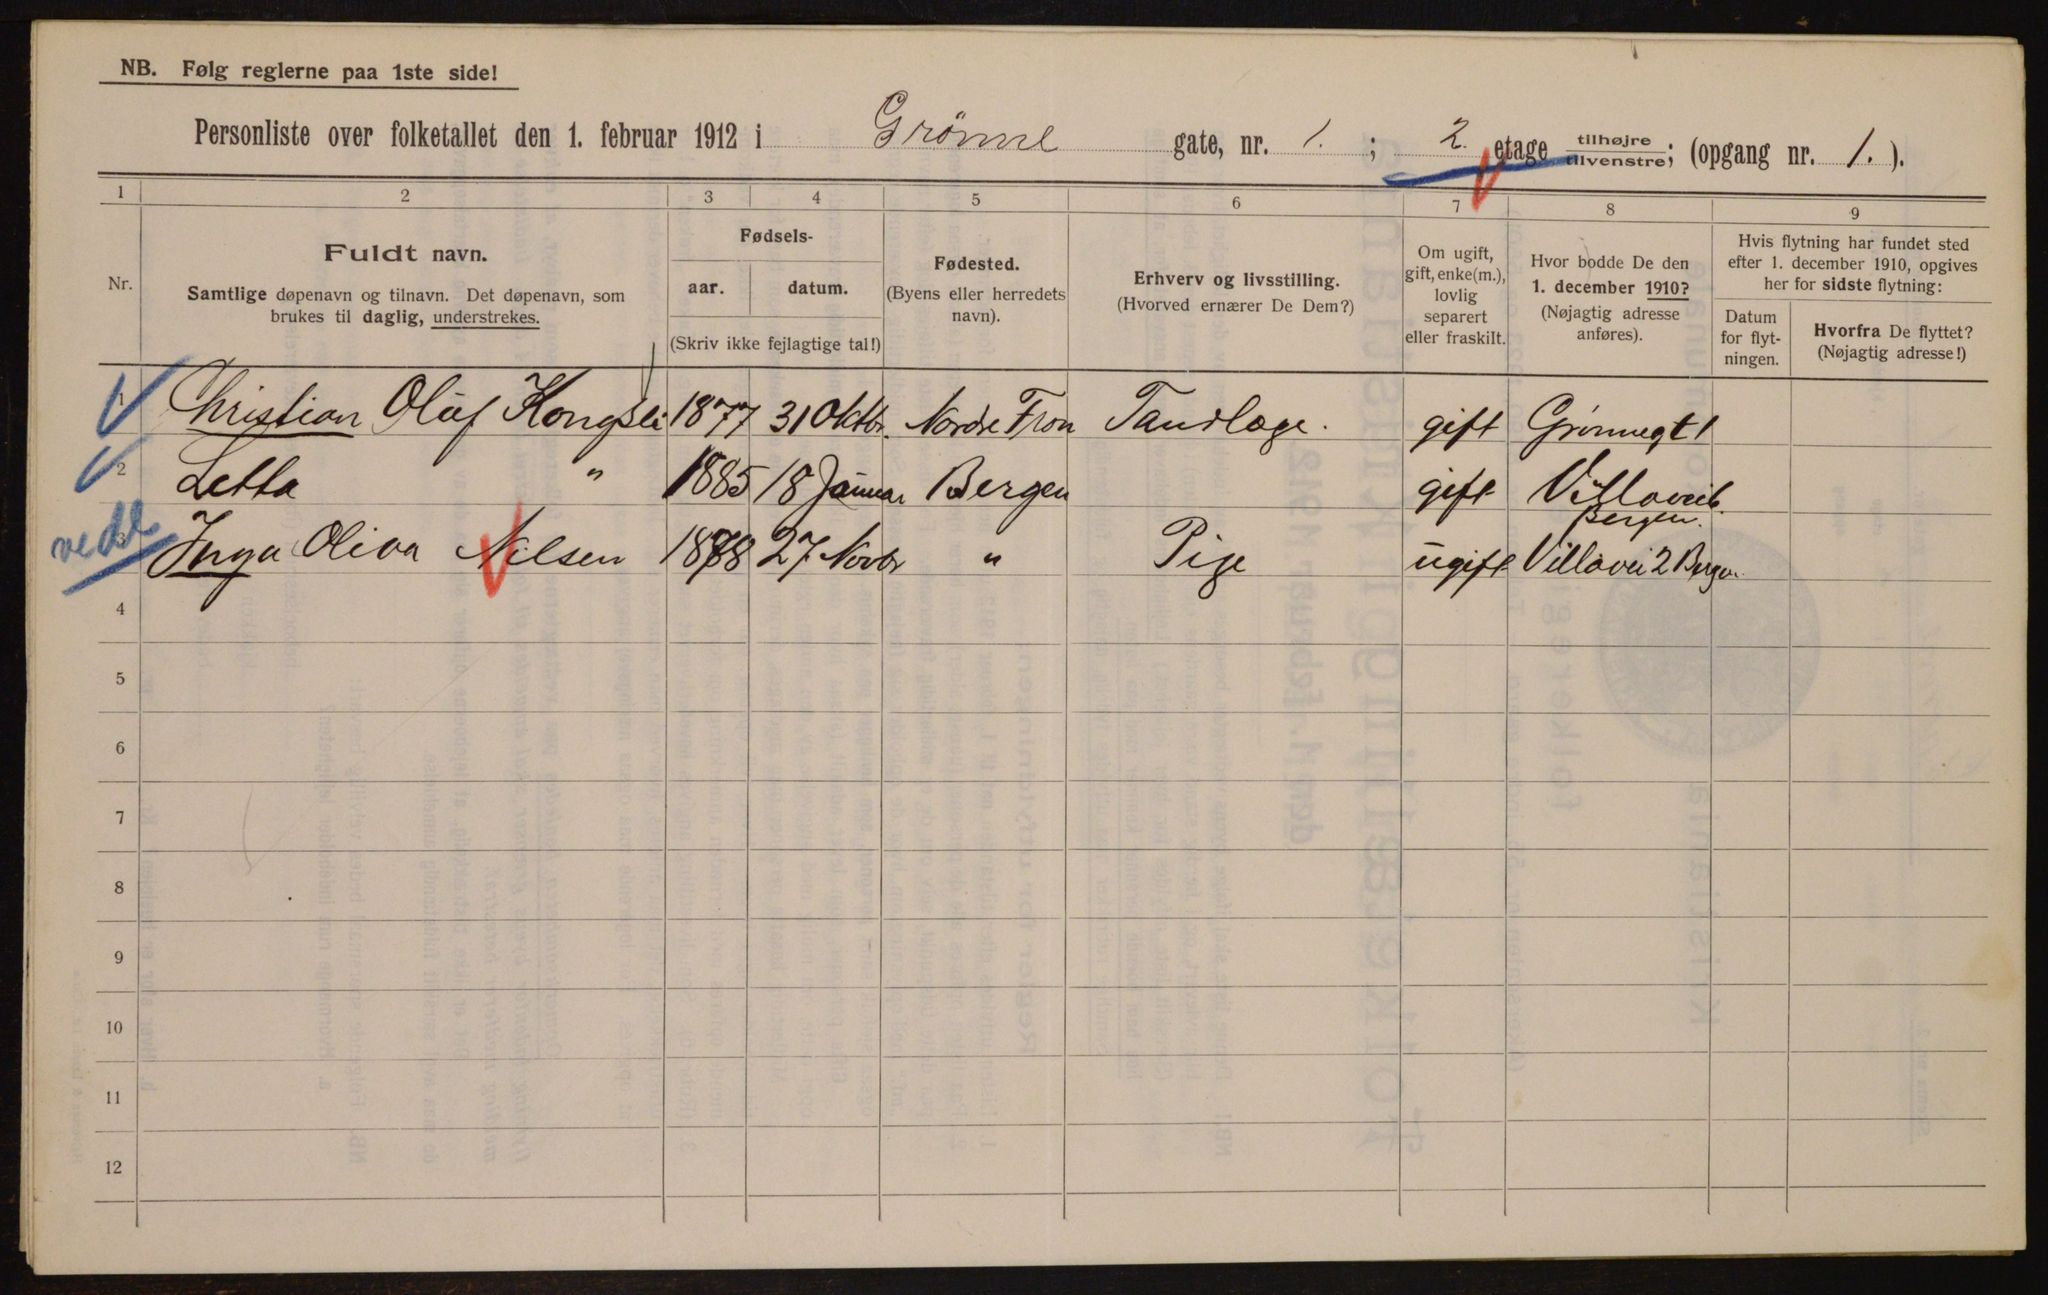 NB. Følg reglerne paa 1ste side!
Personliste over folketallet den 1. februar 1912 i Grönne gate, nr. 1. ; 2. etage tilhøjre tilvenstre; (opgang nr. 1. ).
1 2 3 4 5 6 7 8 9
Nr.
Fuldt navn.
Samtlige døpenavn og tilnavn. Det døpenavn, som
brukes til daglig, understrekes.
Fødsels-
aar. datum.
(Skriv ikke fejlagtige tal!)
Fødested.
(Byens eller herredets
navn).
Erhverv og livsstilling.
(Hvorved ernærer De Dem?)
Om ugift,
gift, enke(m.),
lovlig
separert
eller fraskilt.
Hvor bodde De den
1. december 1910?
(Nøjagtig adresse
anføres).
Hvis flytning har fundet sted
efter 1. december 1910, opgives
her for sidste flytning:
Datum
for flyt-
ningen.
Hvorfra De flyttet?
(Nøjagtig adresse!)
1 Christian Olaf Kongsli 1877 31 Oktbr. Nordre Fron Tandlæge. gift Grønnegt 1
2 Letta " 1885 18 Januar Bergen gift Villaveib.
Bergen.
3 Inga Oliva Nilsen 1888 27 Novbr " Pige ugift Villavei 2 Bergen.
4
5
6
7
8
9
10
11
12